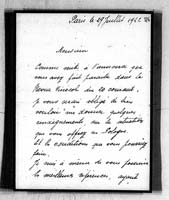 Paris le 29 Juillet 1922
Monsieur
Comme suite à l'annonce que
vous avez fait paraître dans le
courant,
je vous serais obligé de bien
vouloir me donner quelques
renseignements sur la situation
que vous offrez en Pologne.
Et les conditions que vous
faire.
Je suis à même de vous fournir
les meilleures références, ayant